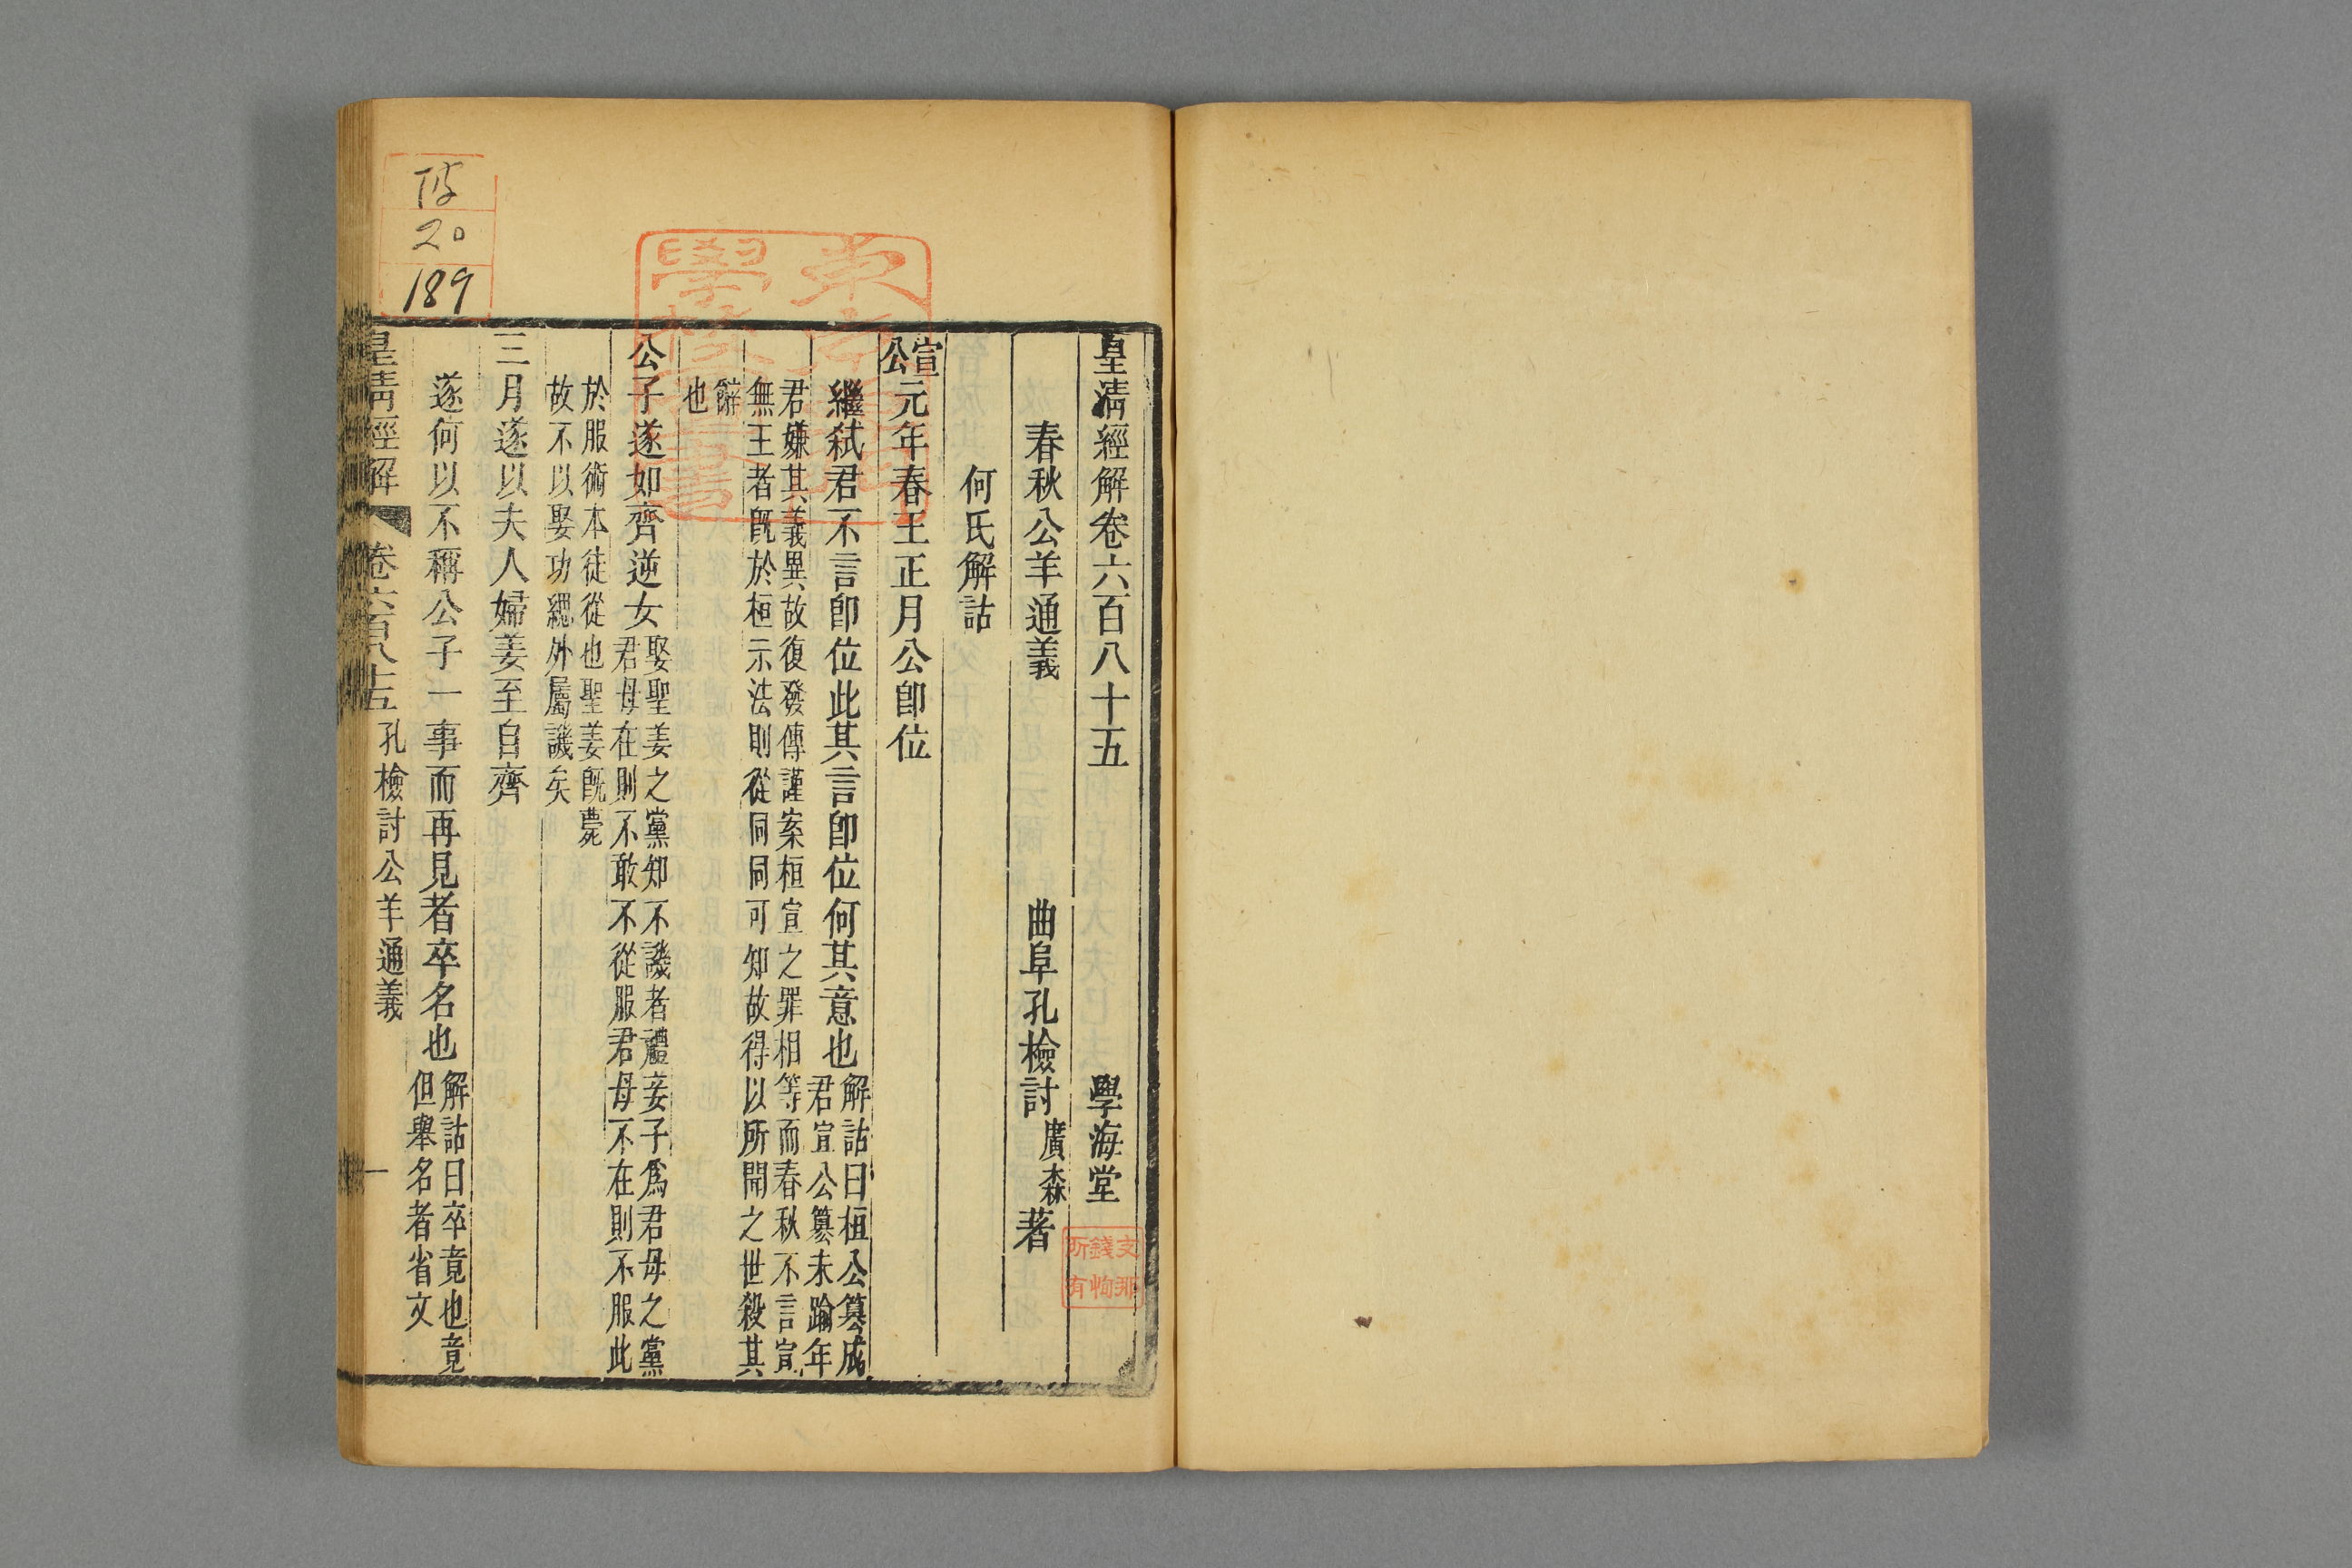 皇清經解卷六百八十五 學海堂
春秋公羊通義 曲阜孔檢討廣森著
何氏解詁
宣公元年春王正月公卽位
繼弒君不言卽位此其言卽位何其意也解詁曰桓公篡成
君宣公篡未踰年
君嫌其義異故復發傳謹案桓宣之罪相等而春秋不言宣
無王者旣於桓示法則從同同可知故得以所聞之世殺其
辭
也
公子遂如齊逆女娶聖姜之黨知不譏者禮妾子爲君母之黨
君母在則不敢不從服君母不在則不服此
於服術本徒從也聖姜旣薨
故不以娶功緦外屬譏矣
三月遂以夫人婦姜至自齊
遂何以不稱公子一事而再見者卒名也解詁曰卒竟也竟
但舉名者省文
皇清經解 卷六百八十五 孔檢討公羊通義 一
20
189
支那錢恂所有